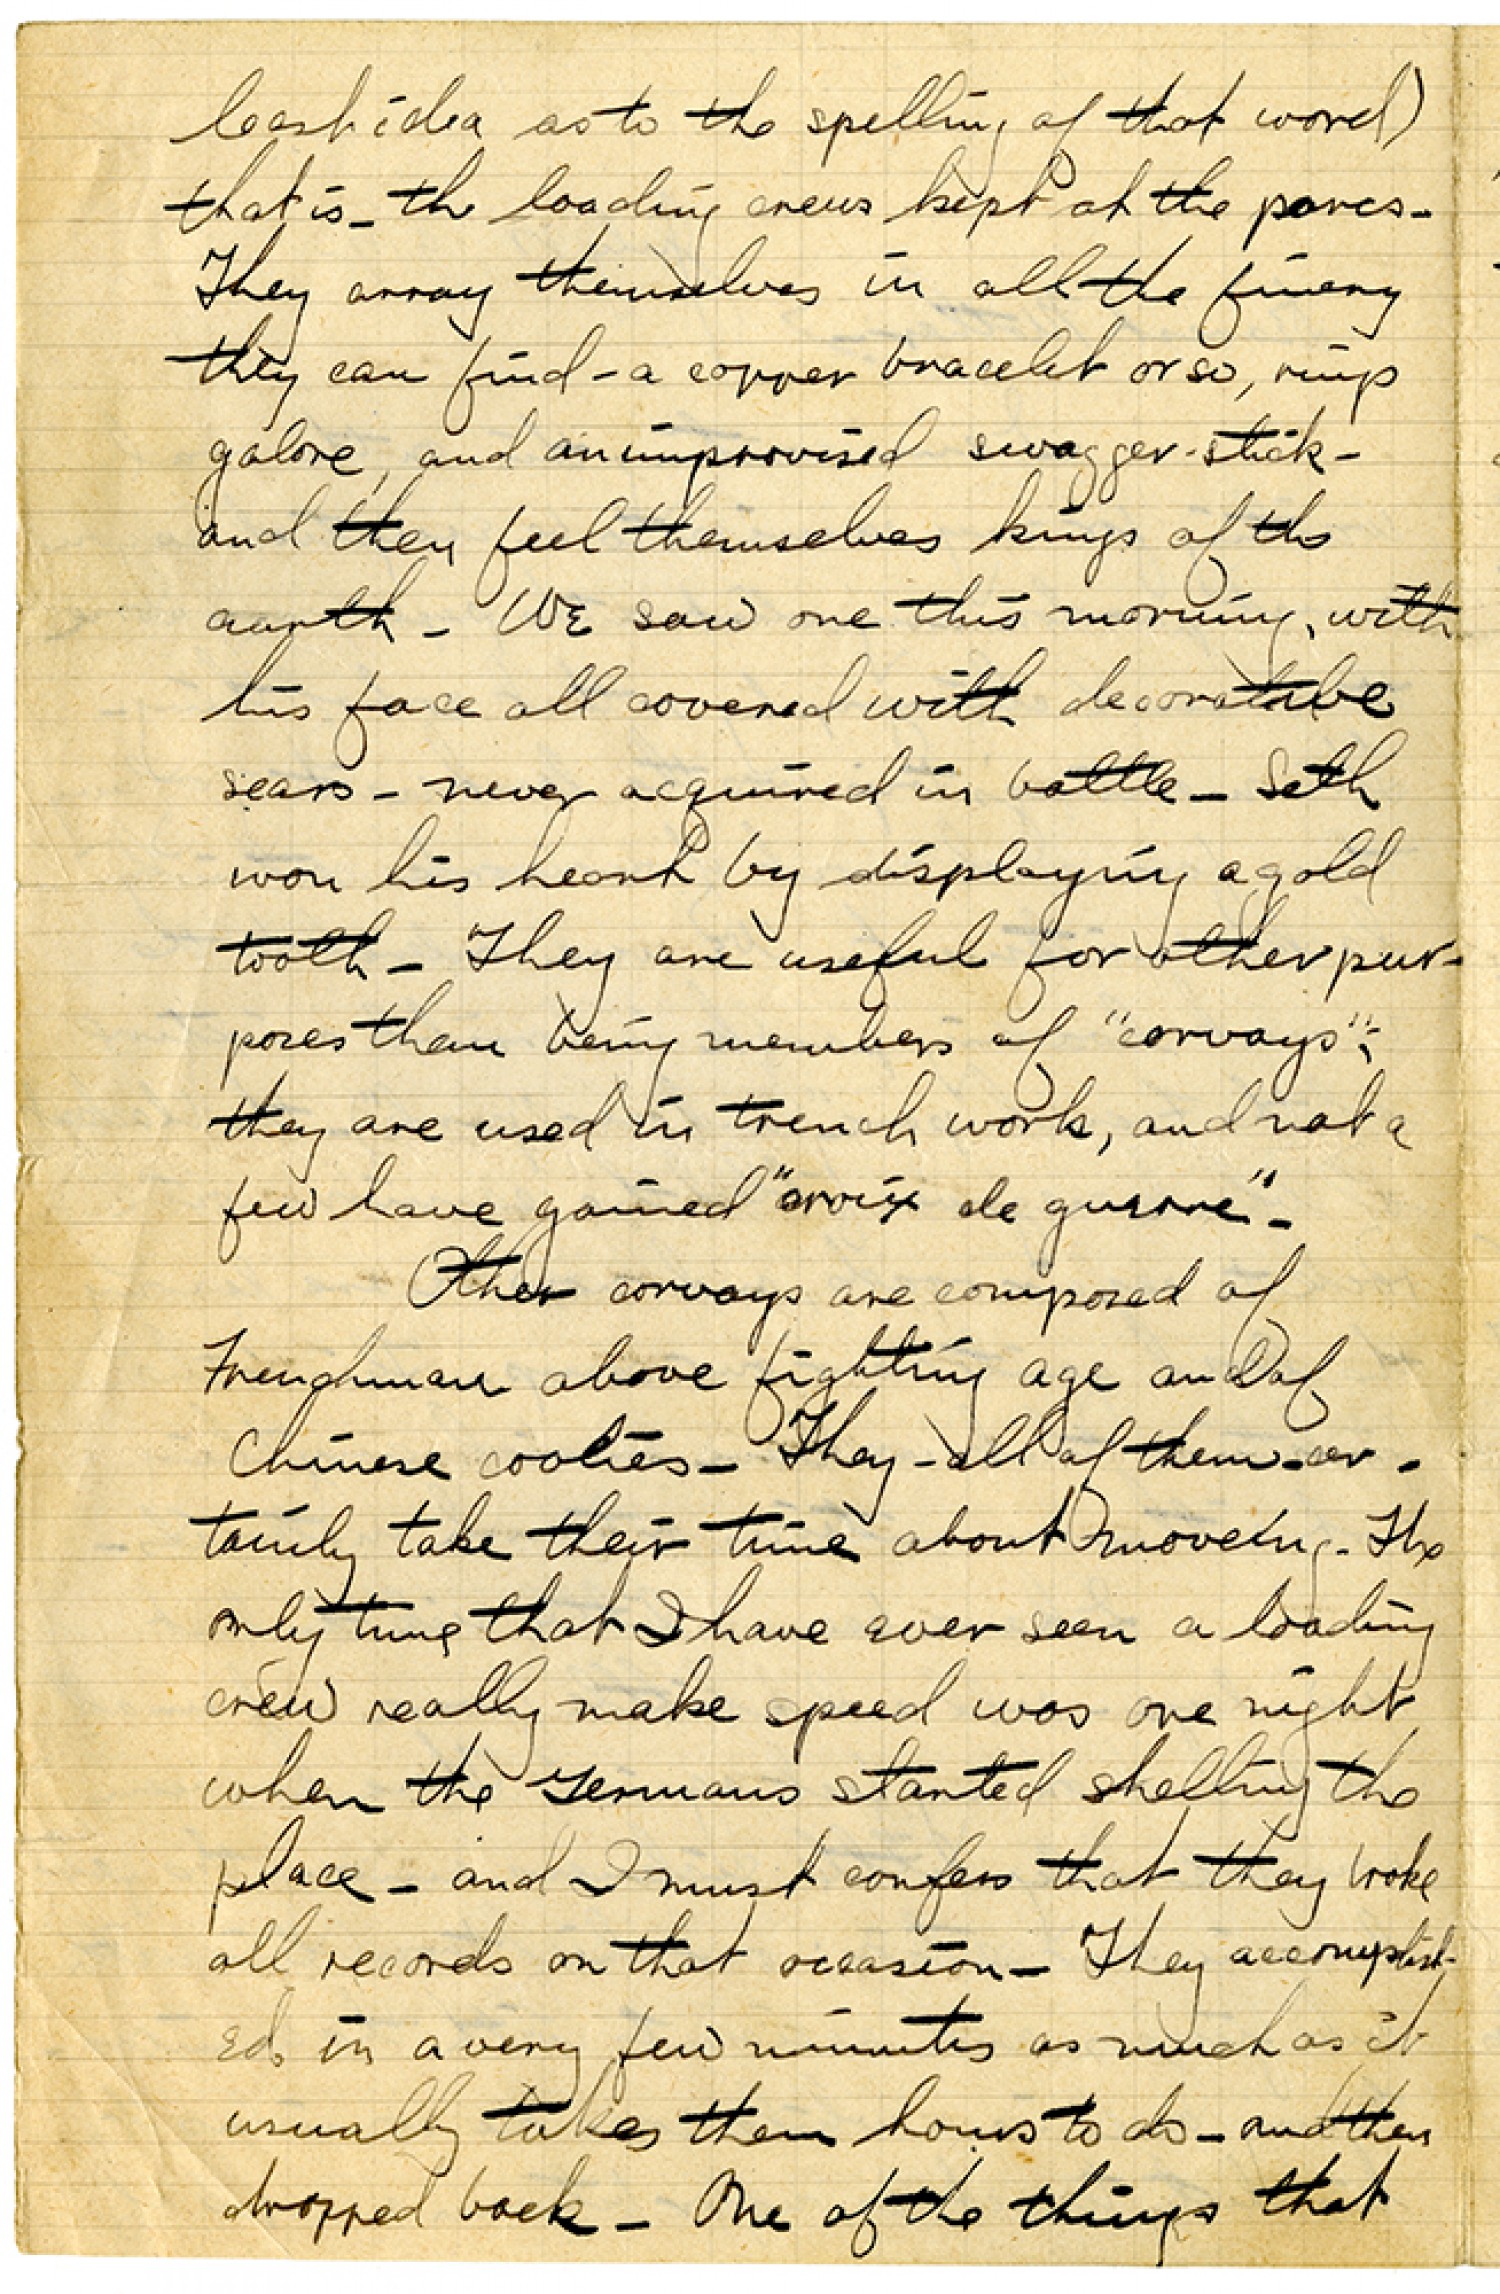 least idea as to the spelling of that word)
that is - the loading crews kept at the parcs -
They array themselves in all the finery
they can find - a copper bracelet or so, rings
galore, and an improvised swagger-stick -
and then feel themselves kings of the
earth - We saw one this morning, with
his face all covered with decorative
scars - never acquired in battle - Seth
won his heart by displaying a gold
tooth - They are useful for other pur-
poses than being members of "corvays";
they are used in trench work, and not a
few have gained "croix de guerre" -
Other corvays are composed of
Frenchmen above fighting age and of
Chinese coolies - They - all of them - cer-
tainly take their time about moveing - The
only time that I have ever seen a loading
crew really make speed was one night
when the Germans started shelling the
place - and I must confess that they broke
all records on that occasion - They accomplish-
ed in a very few minutes as much as it
usually takes them hours to do - and then
dropped back - One of the things that